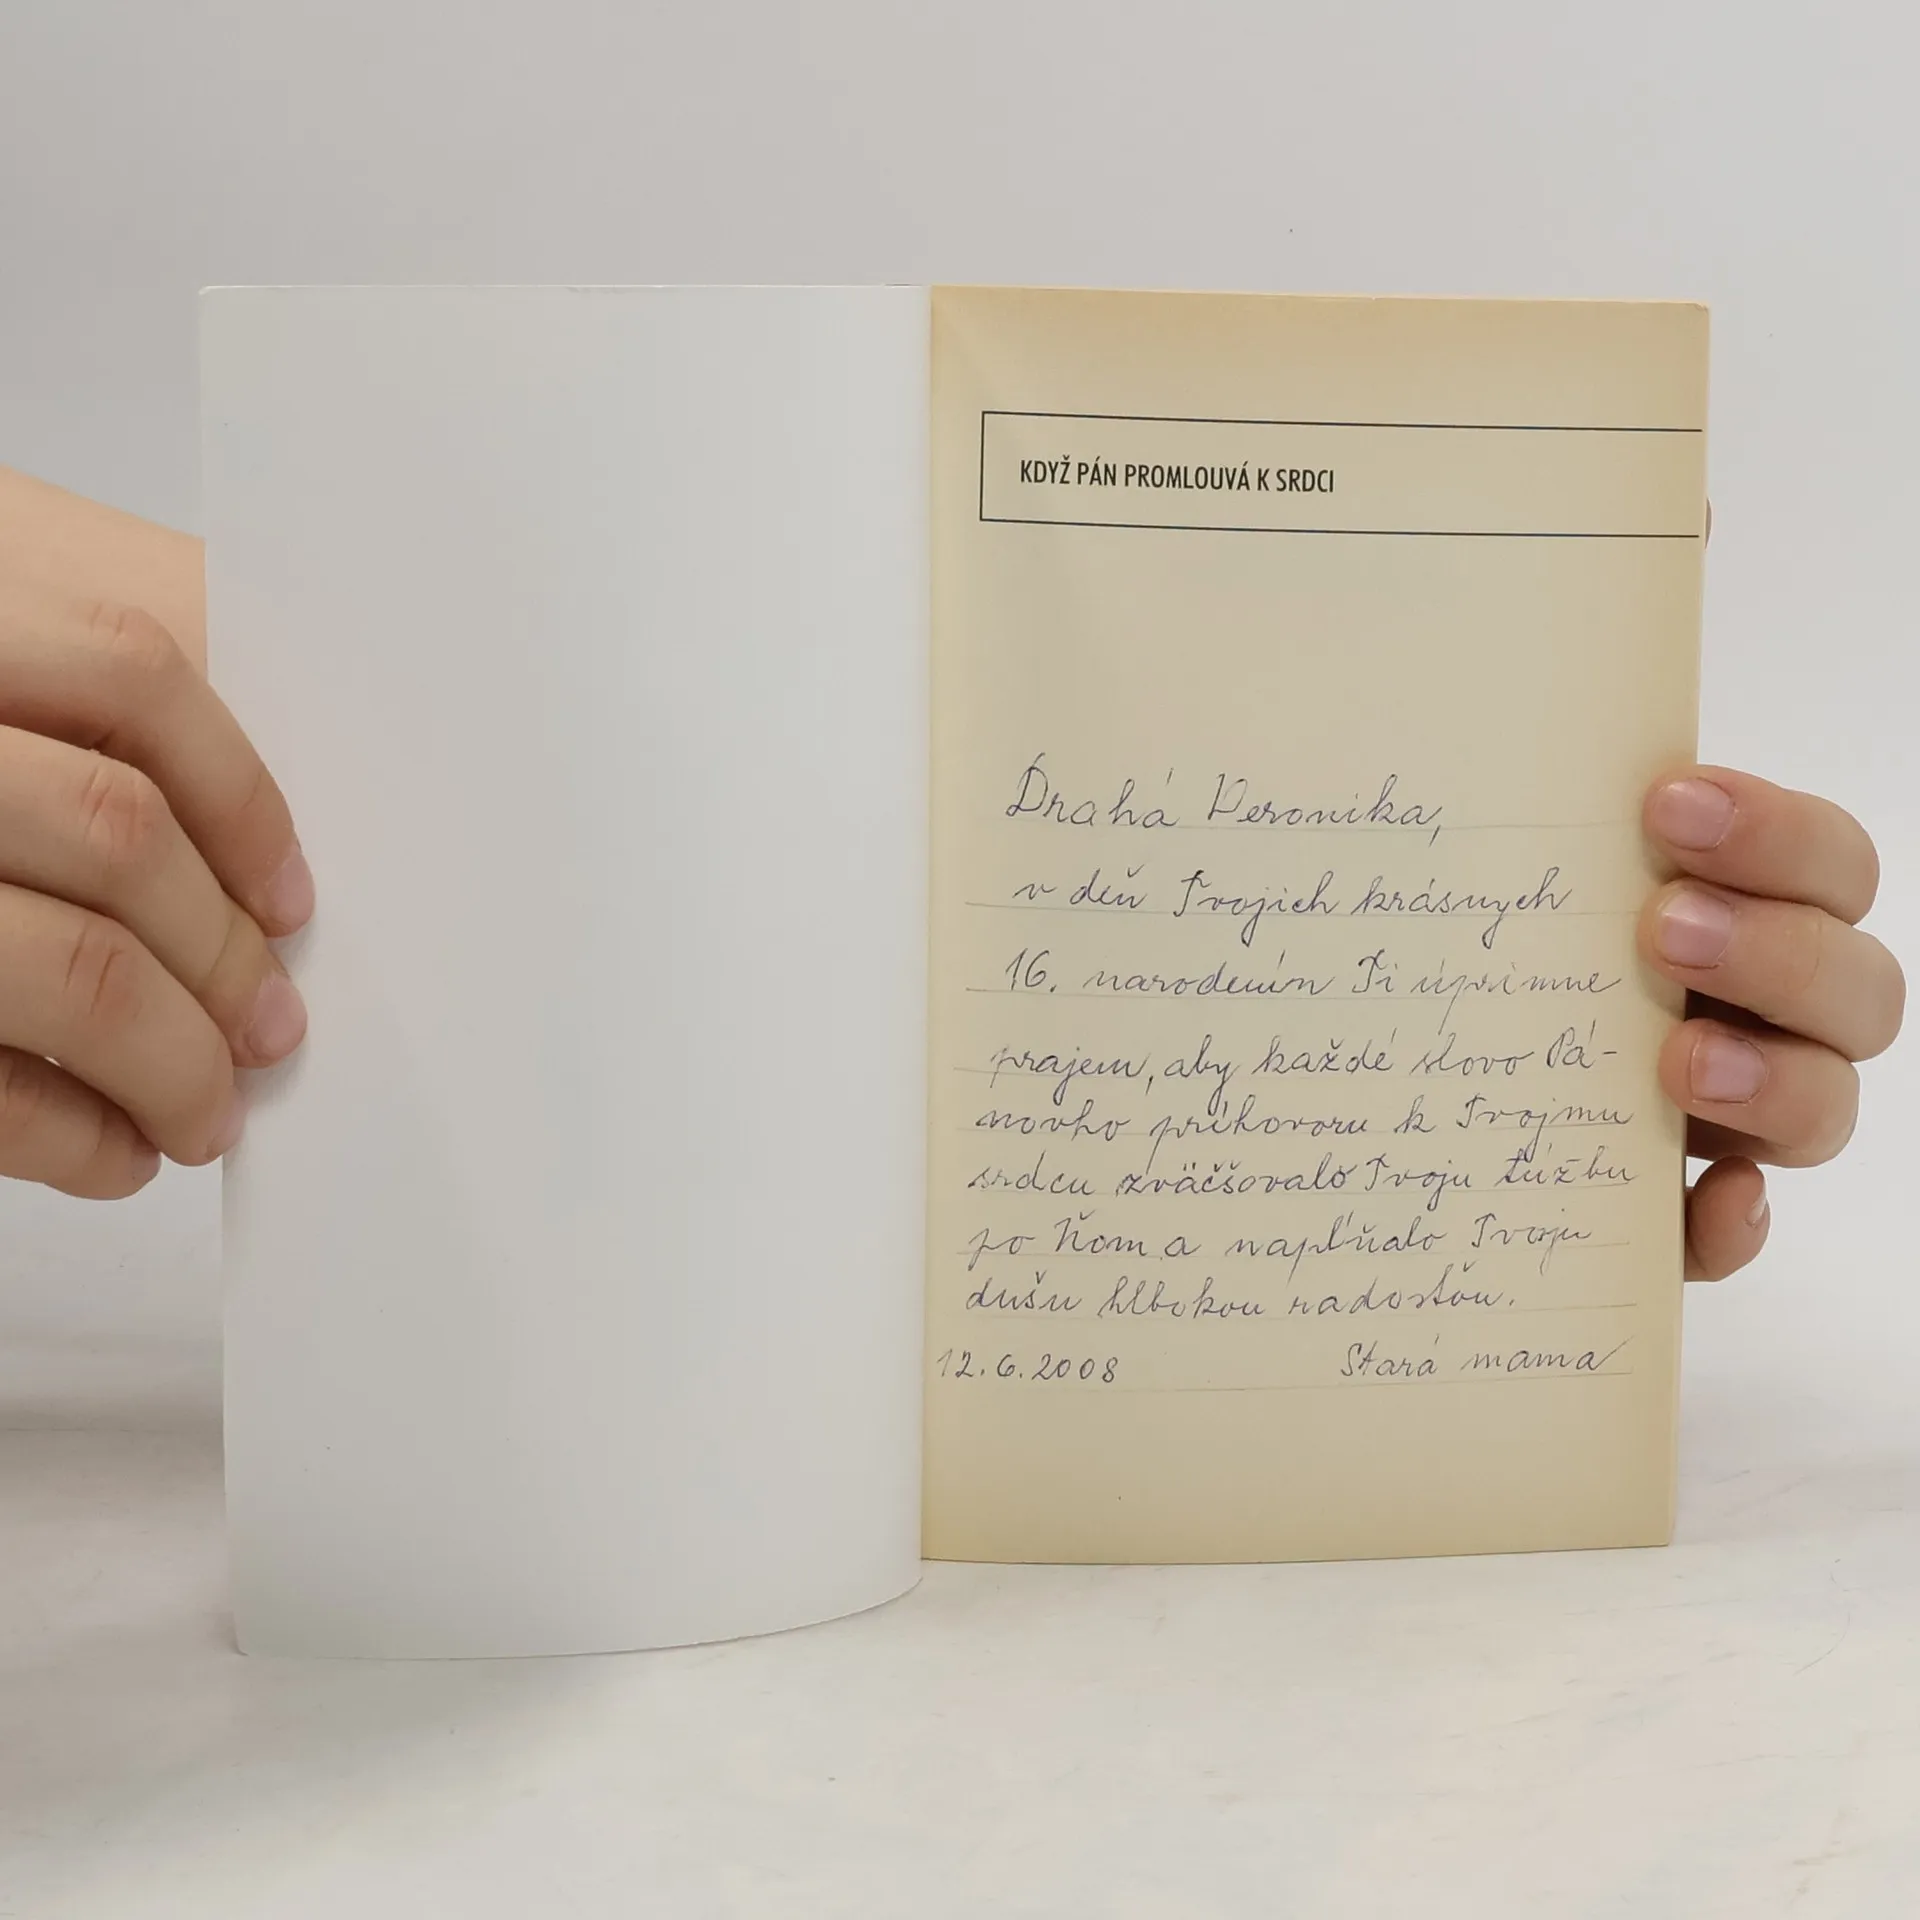 KDYŽ PÁN PROMLOUVÁ K SRDCI
Drahá Veronika,
v deň Tvojich krásnych
16. narodenín Ti úprimne
prajem, aby každé slovo Pá-
novho príhovoru k Tvojmu
srdcu zväčšovalo Tvoju túžbu
po Ňom a napĺňalo Tvoju
dušu hlbokou radosťou.
12.6.2008 Stará mama